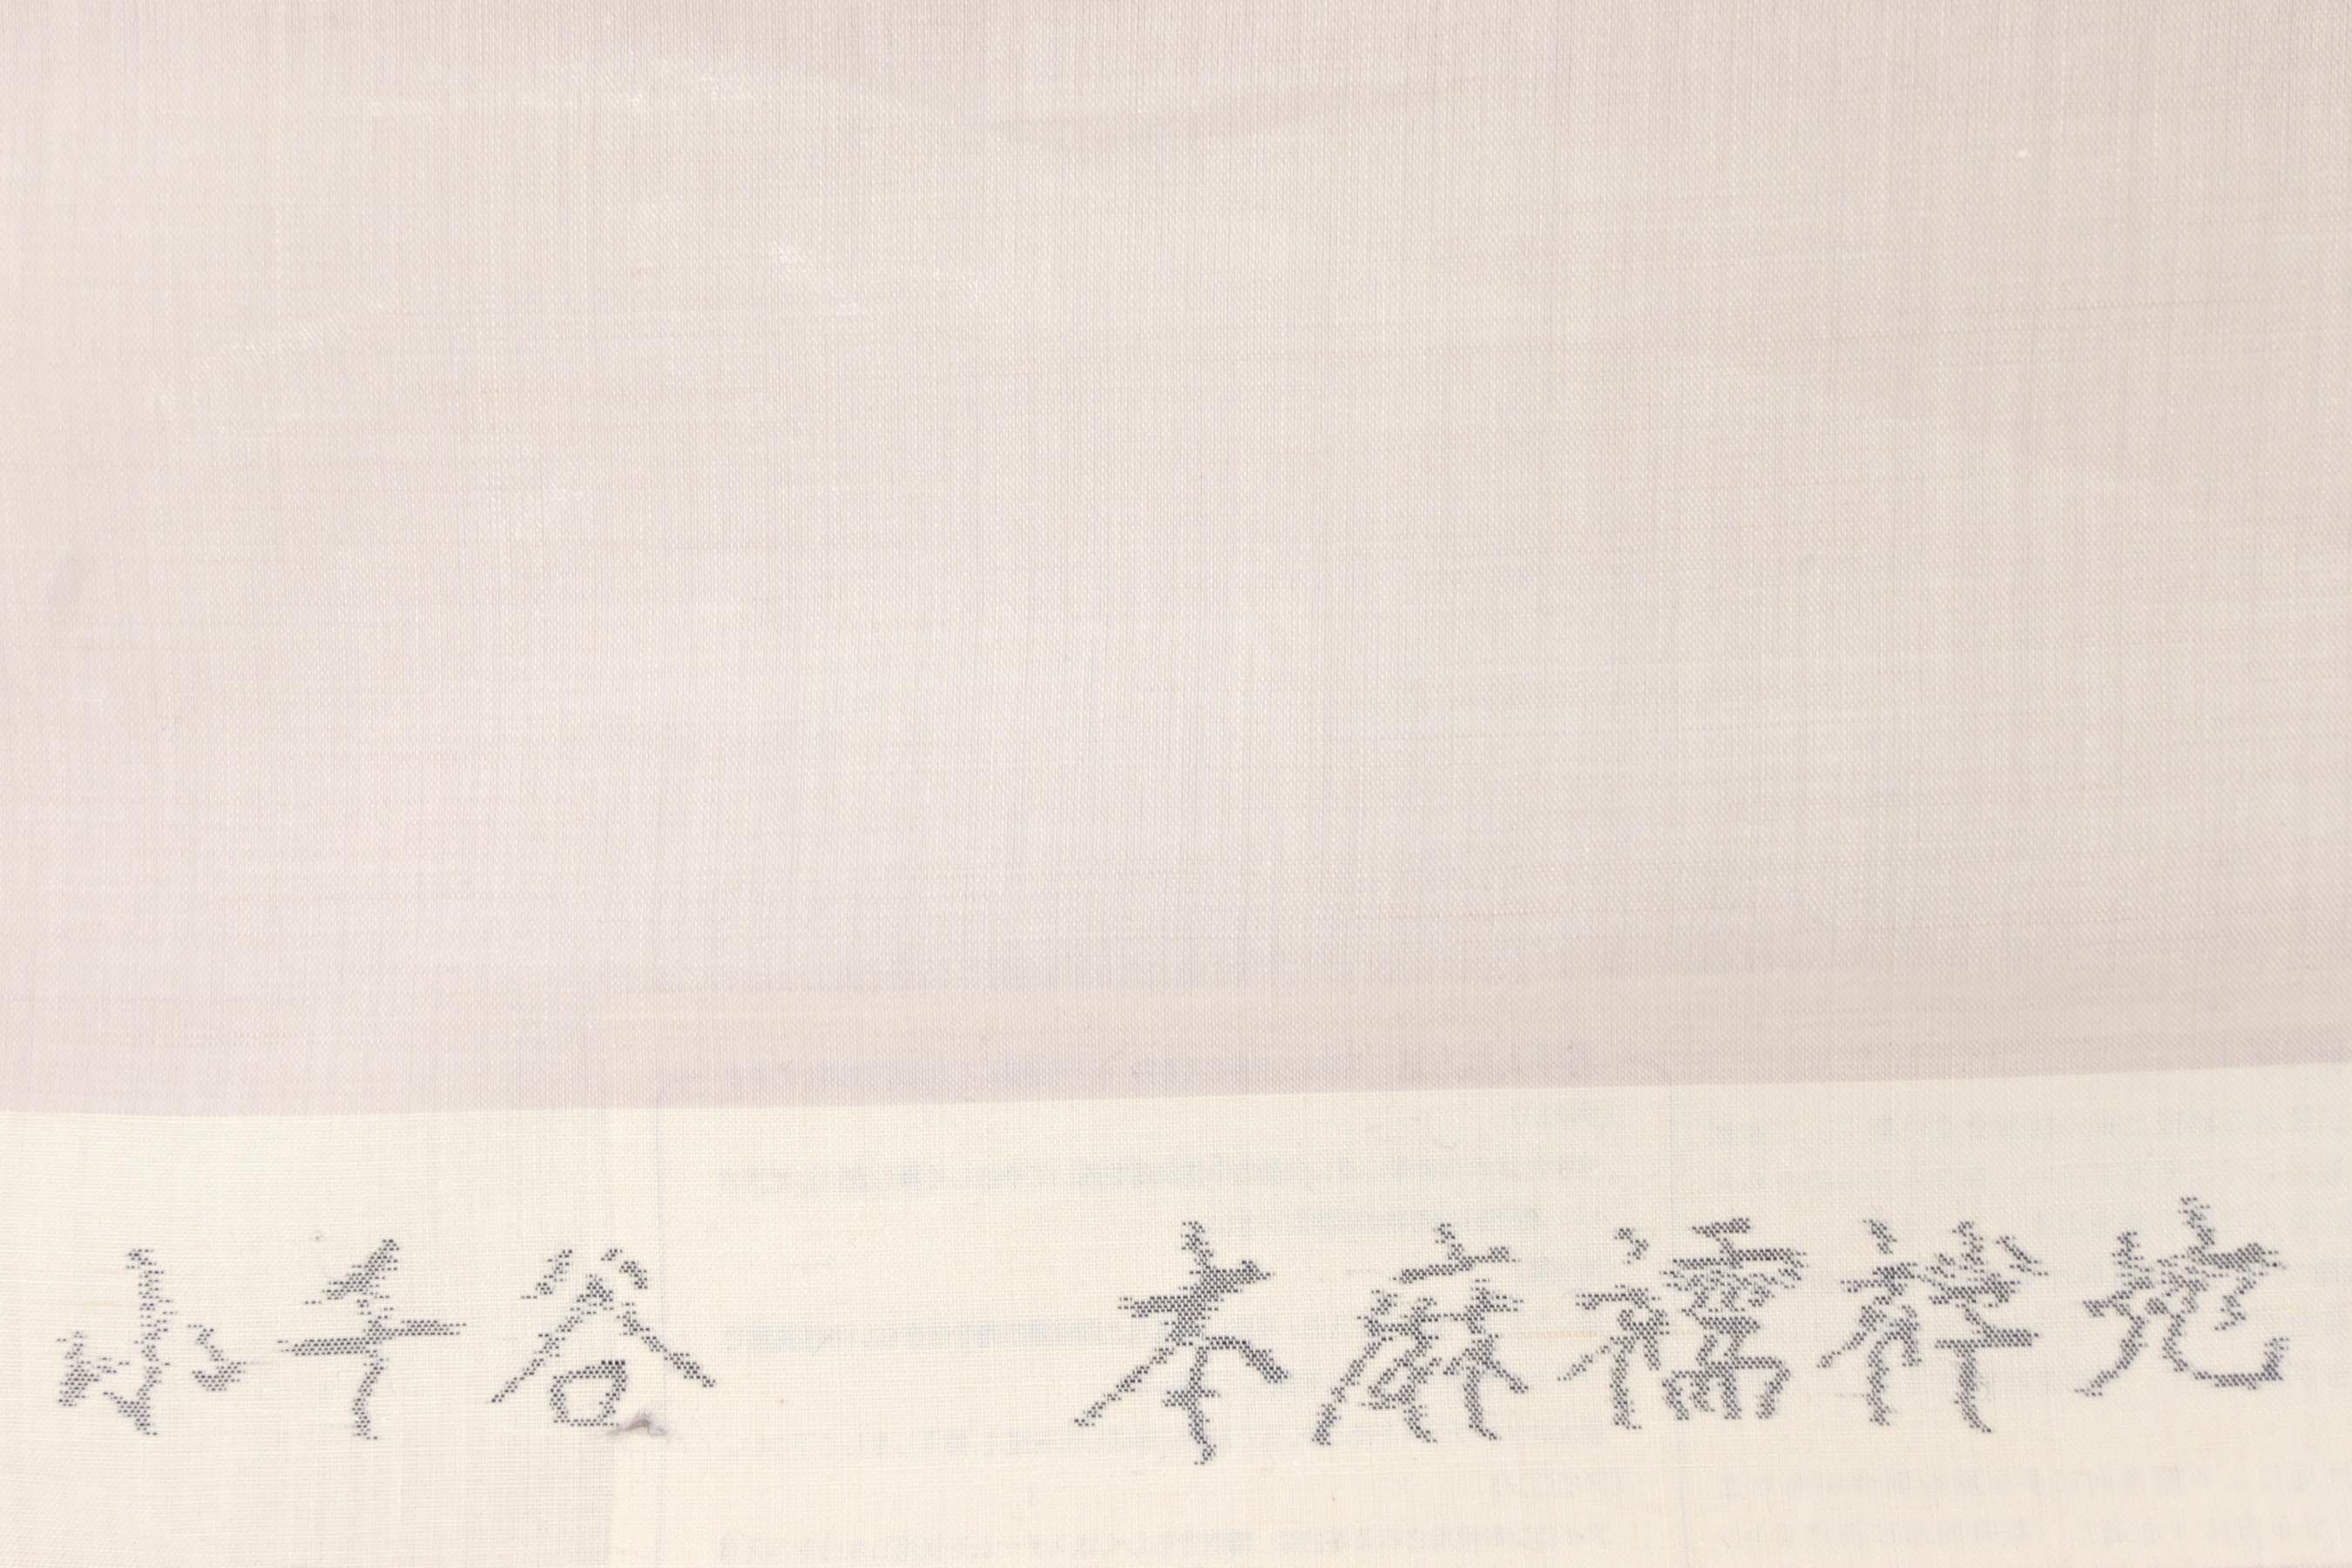 小千谷 本麻襦袢地